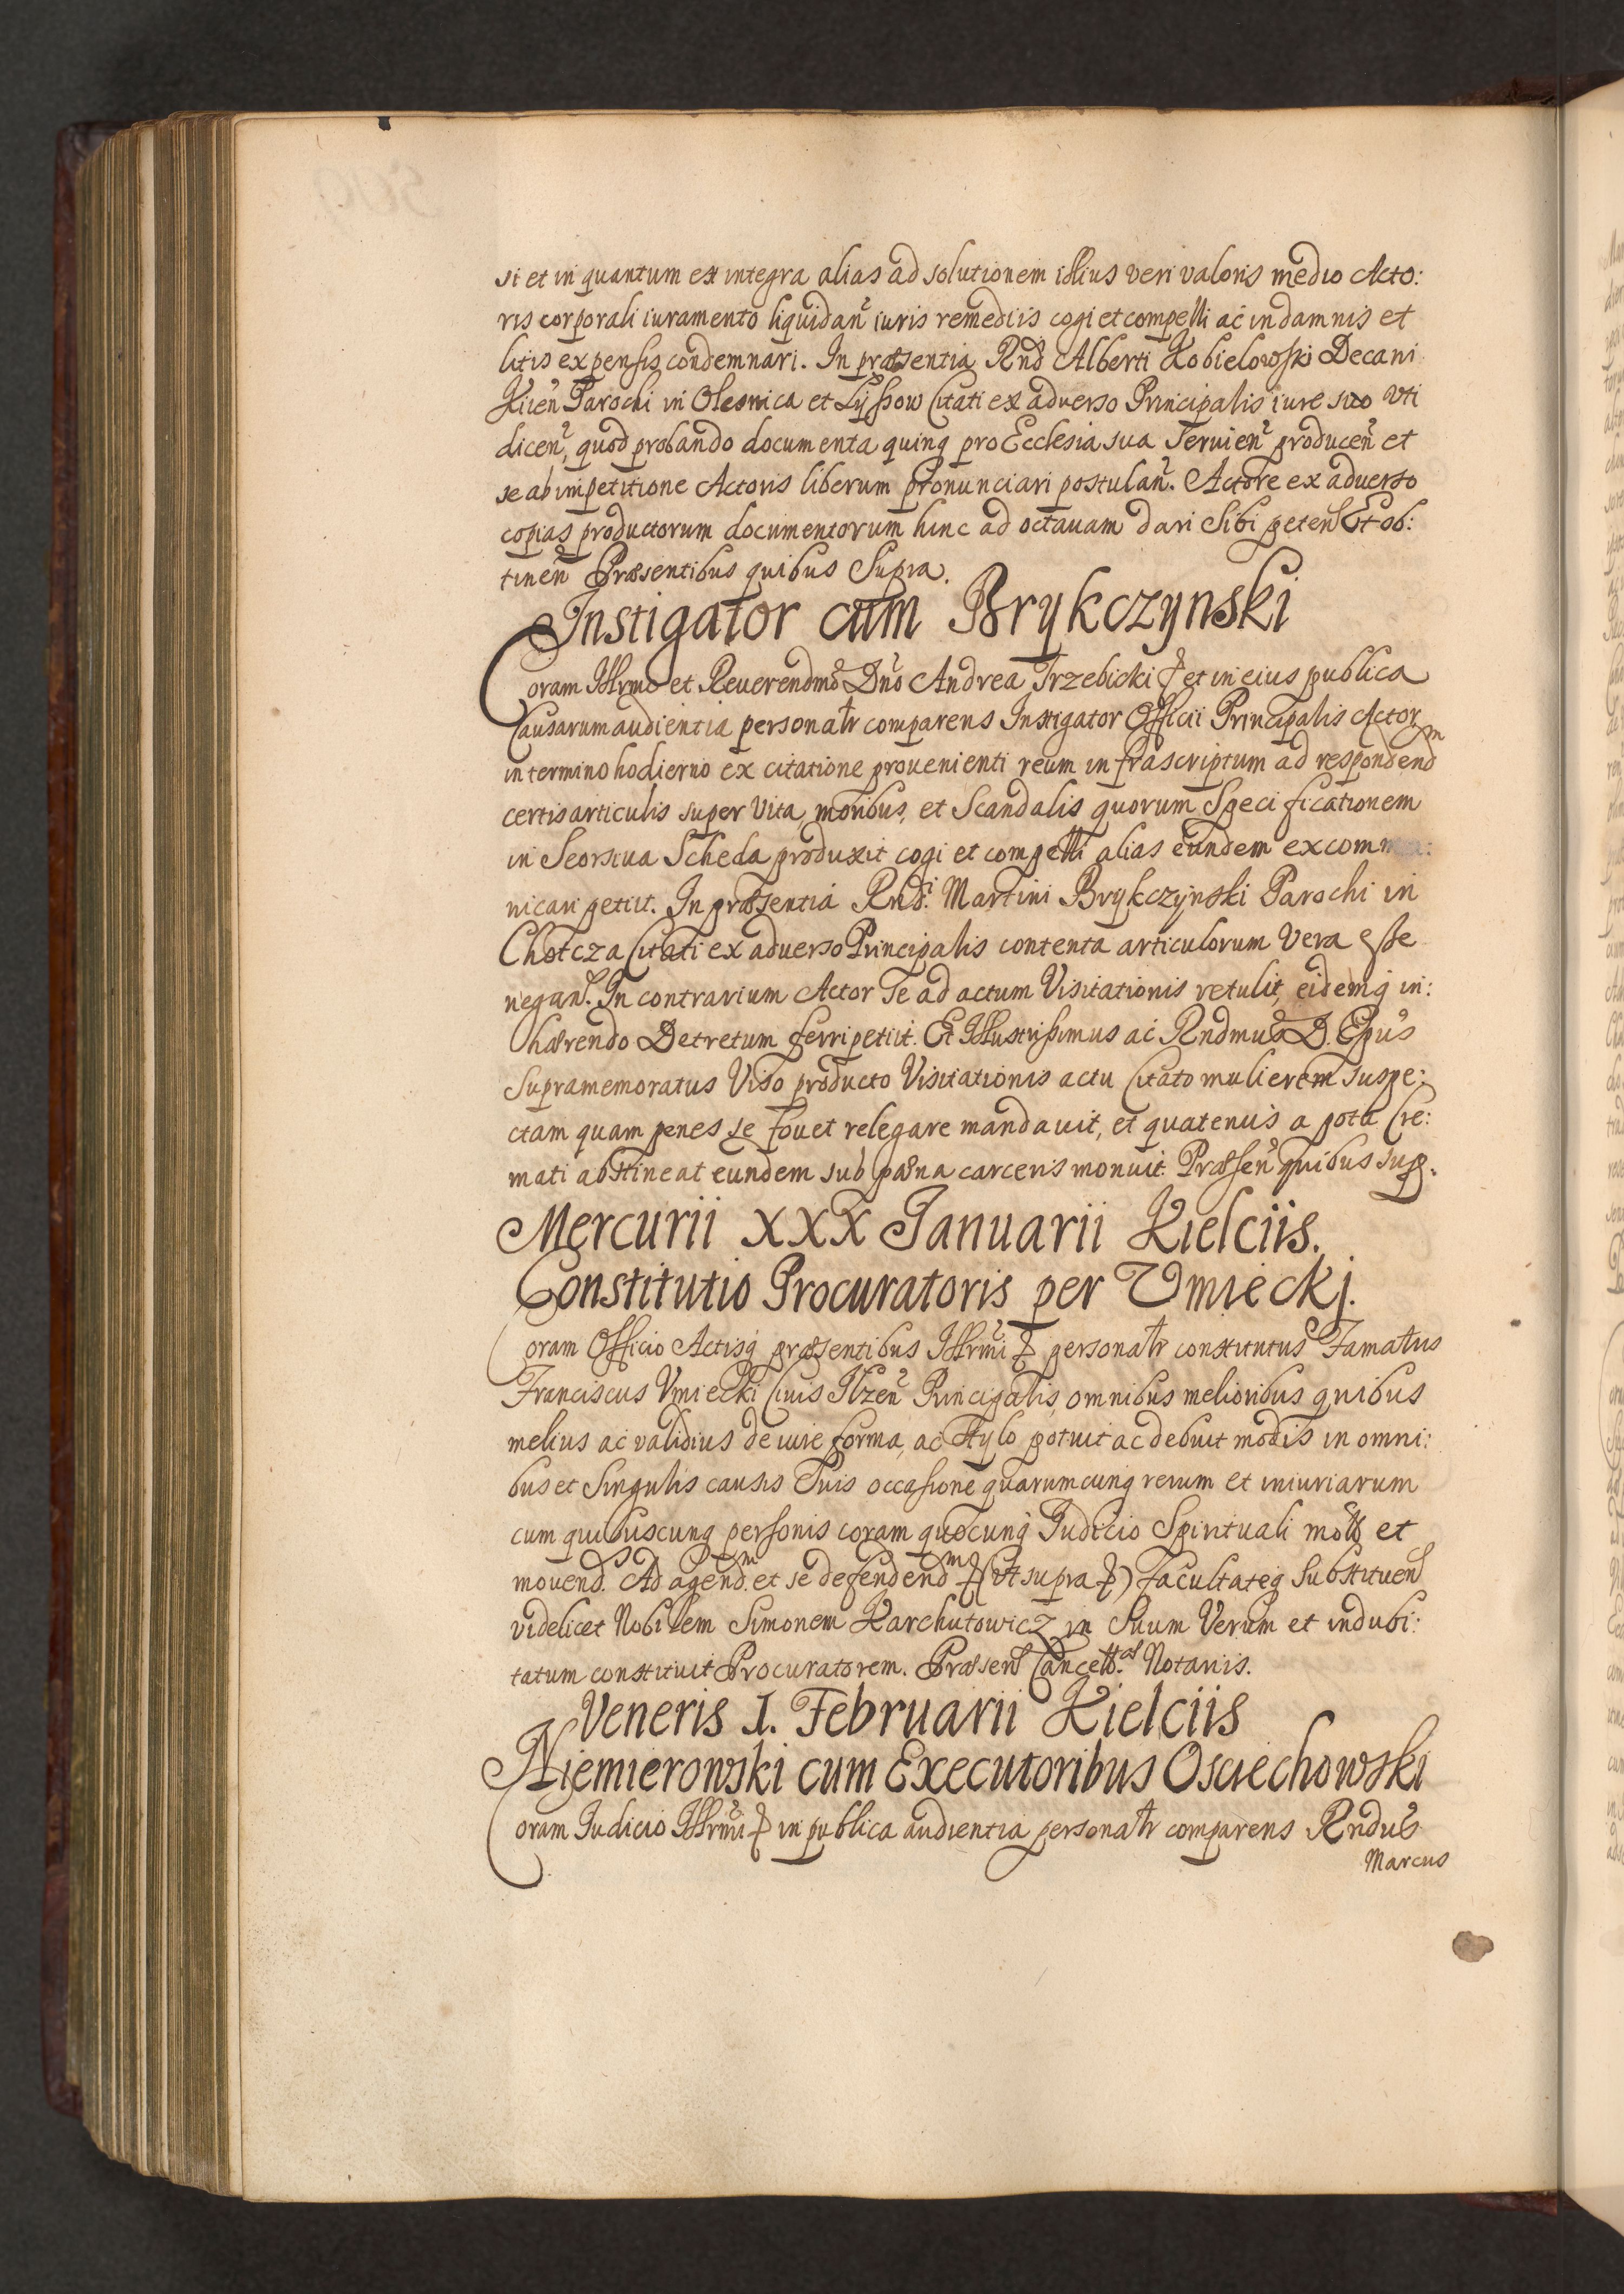 si et in quantum ext integra alias ad solutionem illius veri valoris medio Acto:
ris corporali iuramento liquidan̄ iuris remediis cogi et compelli ac in damnis et
litis expensis condemnari. In præsentia Rnd Alberti Kobielowski Decani
Kiien̄ Parochi in Olesnica et Lyssow Citati ex adverso Principalis iure suo vti
dicen̄, quod probando documenta quinq pro Ecclesia sua Seruien̄ producen̄ et
se ab impetitione Actoris liberum pronunciari postulan̄. Actore ex aduerso
copias productorum documentorum hinc ad octauam dari Sibi peten̄ Et ob:
tinen̄ Præsentibus quibus Supra.
Instigator cum Brykczynski
Coram Illrmo et Reuerendmo Dno Andrea Trzebicki et in eius publica
Causarum audientia personalr comparens Instigator Officii Principalis Actor
in termino hodierno ex citatione prouenienti reum infrascriptum ad respondendm
certis articulis super vita, moribus, et Scandalis quorum Specificationem
in Seorsiua Scheda produxit cogi et compelli alias eundem excommu:
nicari petiit. In præsentia Rndi. Martini Brykczynski Parochi in
Chotcza Citati ex aduerso Principalis contenta articulorum vera esse
negan̄. In contrarium Actor Se ad actum Visitationis retulit, eidemq in:
hærendo Decretum ferri petiit. Et Illustrissimus ac Rndmus D. Epus
Supramemoratus Viso producto Visitationis actu Citato mulierem suspe:
ctam quam penes se fouet relegare mandauit, et quatenus a potu Cre:
mati abstineat eundem sub pæna carceris monuit. Præsen̄ quibus sup.
Mercurii XXX Januarii Kielciis.
Constitutio Procuratoris per Vmieckj.
Coram Officio Actisq præsentibus Illrmi personalr constitutus Famatus
Franciscus Vmiecki Ciuis Ilzen̄ Principalis, omnibus melioribus quibus
melius ac validius de iure forma, ac Stylo potuit ac debuit modis in omni:
bus et Singulis causis Suis occasione quarumcunq rerum et iniuriarum
cum quibuscunq personis coram quocunq Judicio Spirituali motis et
mouend. Ad agendm. et se defendendm (vt supra) facultateq Substituen̄
videlicet Nobilem Simonem Karchutowicz in Suum Verum et indubi:
tatum constituit Procuratorem. Præsen̄ Cancell. Notariis.
Veneris 1. Februarii Kielciis
Niemierowski cum Executoribus Osciechowski
Coram Judicio Illrmi in publica audientia personalr comparens Rndus
Marcus